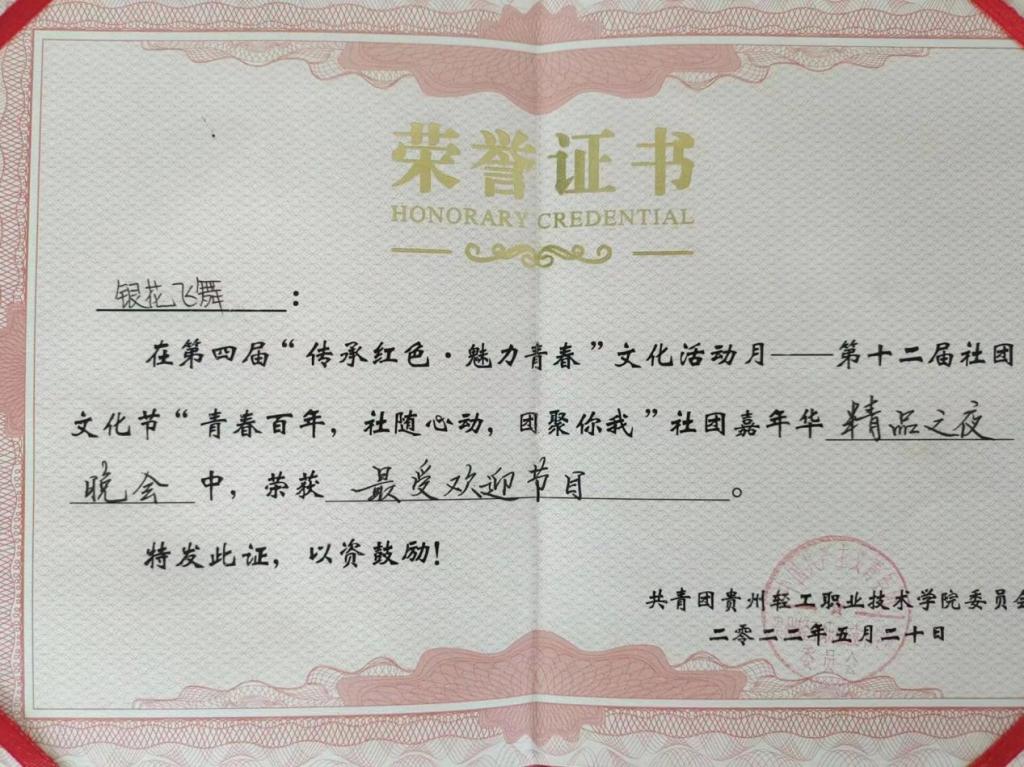 荣誉证书
HONORARY CREDENTIAL
银花飞舞：
在第四届“传承红色·魅力青春”文化活动月——第十二届社团
文化节“青春百年，社随心动，团聚你我”社团嘉年华精品之夜
晚会中，荣获最受欢迎节目。
特发此证，以资鼓励！
共青团贵州轻工职业技术学院委员会
二零二二年五月二十日
委员会